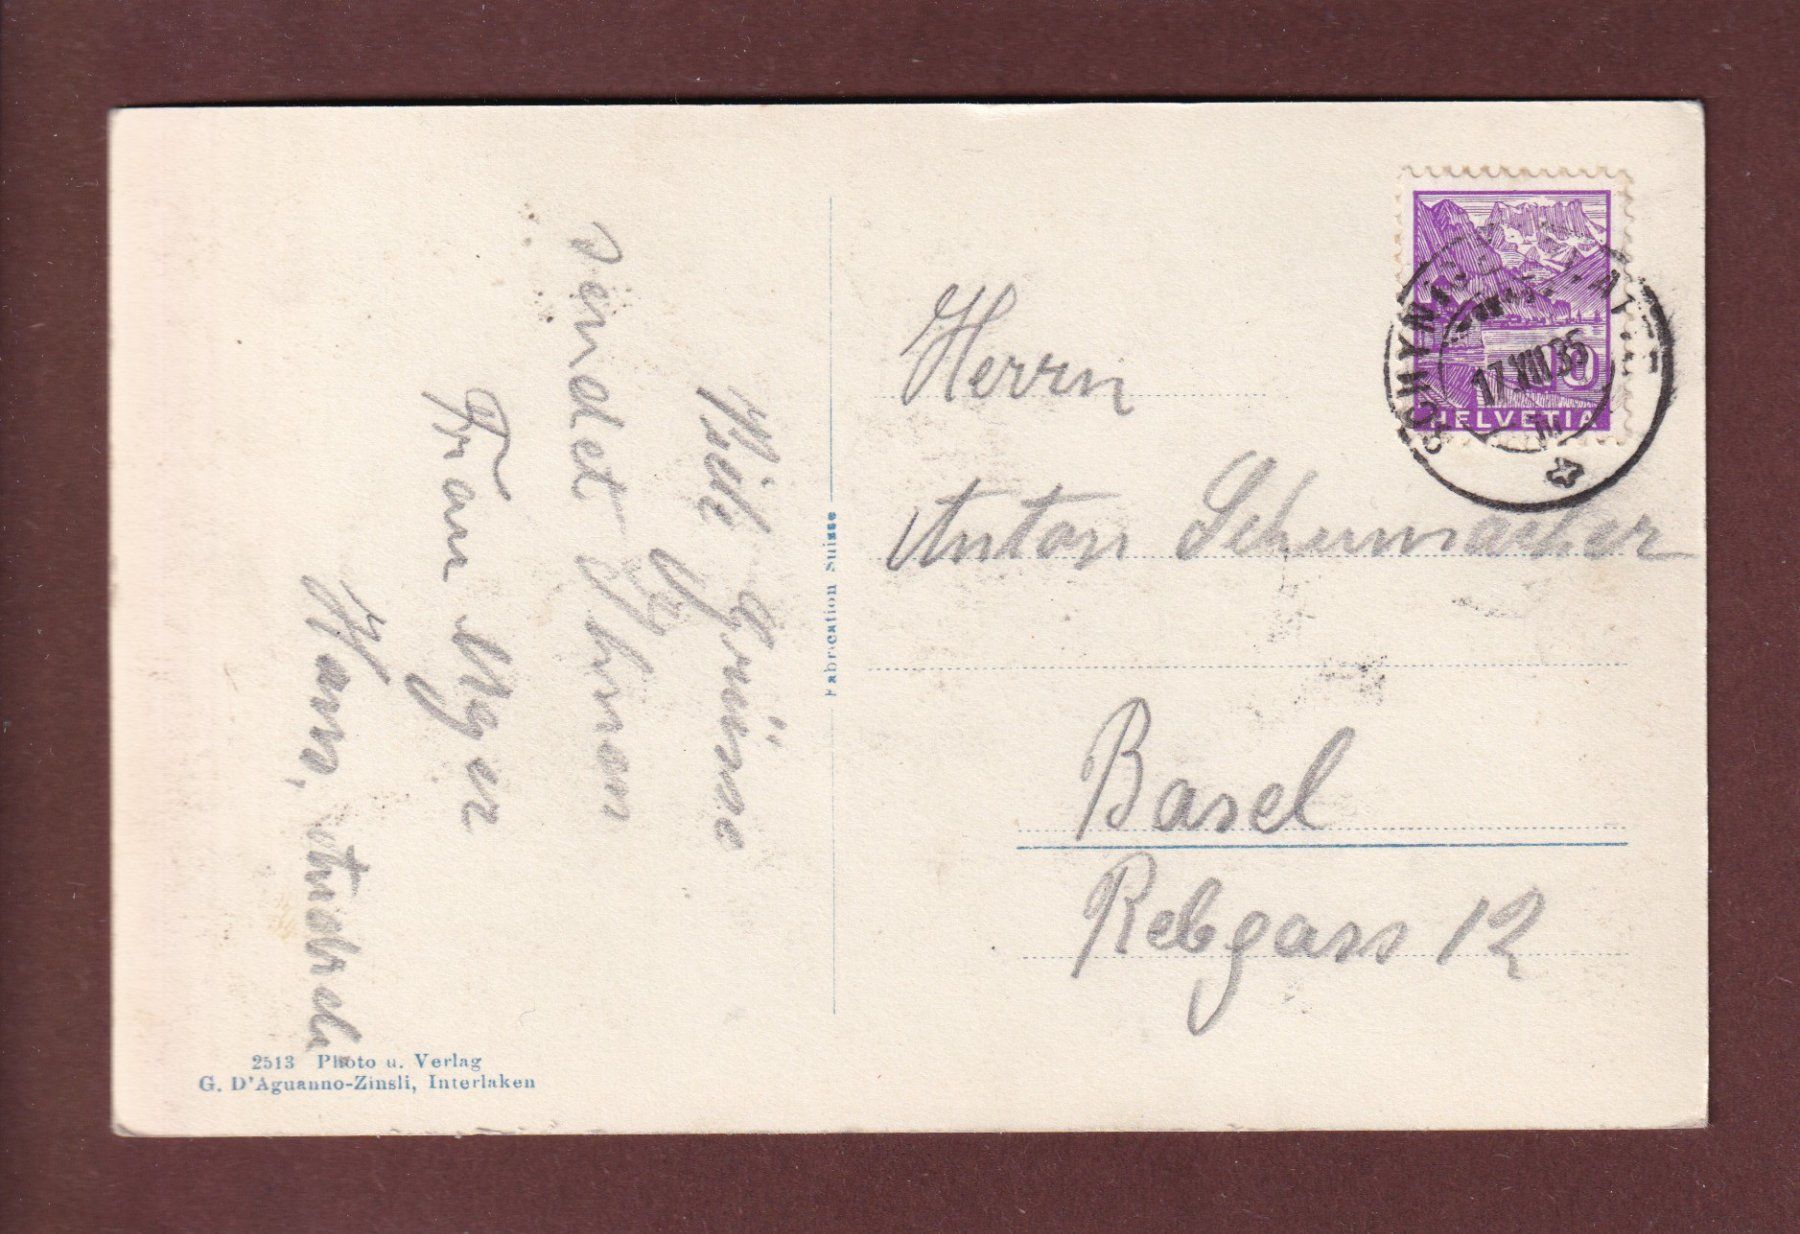 Viele Grüsse
sendet Ihnen
Frau
Hans,
2513 Photo u. Verlag
G. D'Aguanno-Zinsli, Interlaken
Fabrication Suisse
HELVETIA
17.VIII.35
Herrn
Anton Schumacher
Basel
Rebgass 12